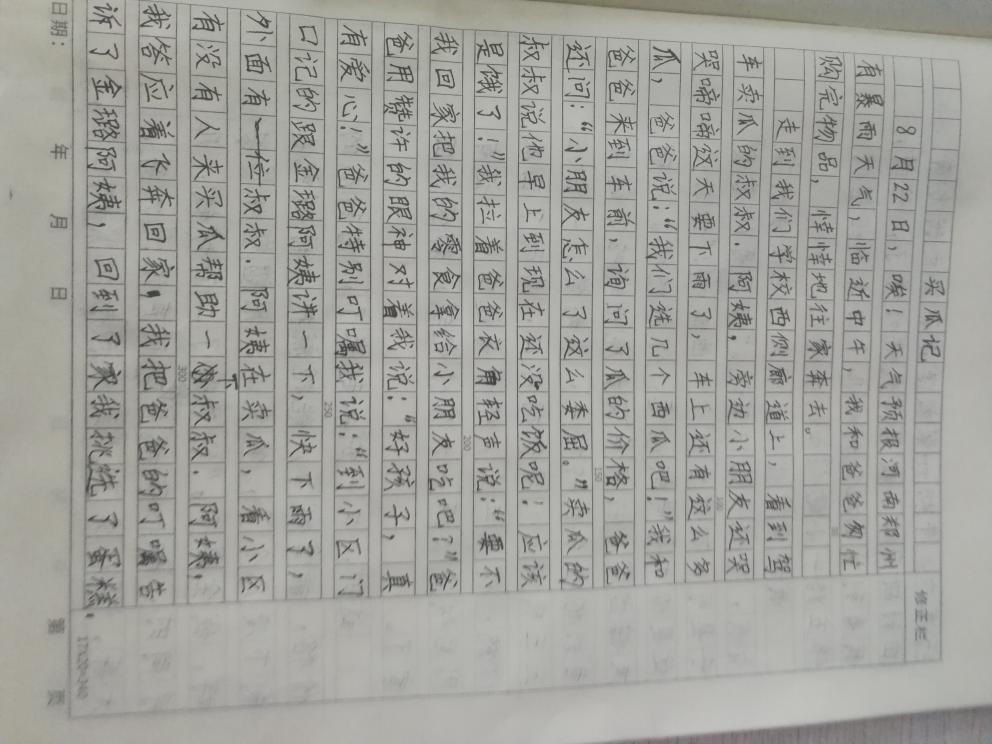 买瓜记
修正栏
8月22日，唉！天气预报河南郑州
有暴雨天气，临近中午，我和爸爸匆忙
购完物品，悻悻地往家奔去。
走到我们学校西侧廊道上，看到驾
车卖瓜的叔叔．阿姨，旁边小朋友还哭
哭啼啼这天要下雨了，车上还有这么多
瓜，爸爸说：“我们选几个西瓜吧！”我和
爸爸来到车前，询问了瓜的价格，爸爸
还问：“小朋友怎么了这么委屈。”卖瓜的
叔叔说他早上到现在还没吃饭呢！应该
是饿了！”我拉着爸爸衣角轻声说：“要不
我回家把我的零食拿给小朋友吃吧？”爸
爸用赞许的眼神对着我说：“好孩子，真
有爱心！”爸爸特别叮嘱我说：“到小区门
口记的跟金璐阿姨讲一下，快下雨了，
外面有一位叔叔．阿姨在卖瓜，看小区
有没有人来买瓜帮助一下叔叔．阿姨，
我答应着飞奔回家，我把爸爸的叮嘱告
诉了金璐阿姨，回到了家我挑选了蛋糕，
日期：　年　月　日　第　页
17x20=340